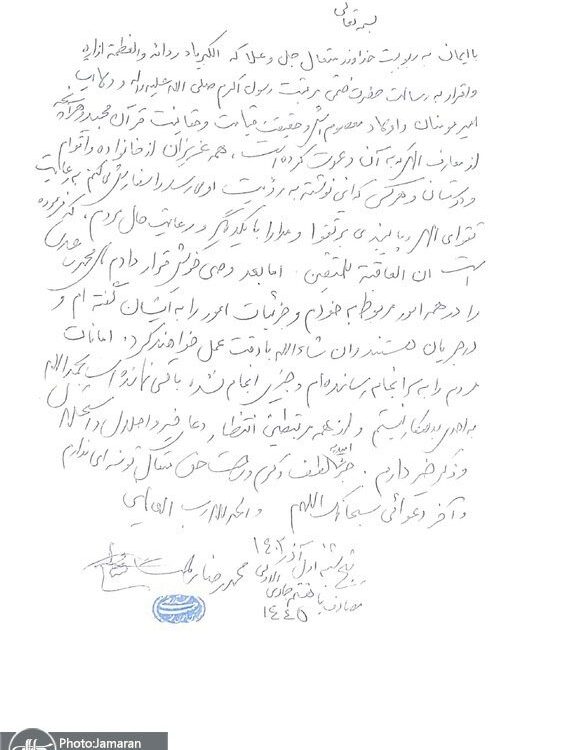 بسمه تعالی
با ایمان به ربوبیت خداوند متعال جل و علا که الکبریاء ردائه و العظمة ازاره
و اقرار به رسالت حضرت ختمی مرتبت رسول اکرم صلی الله علیه و آله و ولایت
امیر مومنان و اولاد معصوم اش و حقیقت قیامت و حقانیت قرآن مجید و هرآنچه
از معارف الهی به آن دعوت کرده است، همه عزیزان از خانواده و اقوام
و دوستان و هر کسی که این نوشته به رؤیت او می رسد را سفارش می کنم به رعایت
تقوای الهی و پایبندی بر تقوا و مدارا با یکدیگر و رعایت حال مردم، که فرموده
است ان العاقبة للمتقین. اما بعد وصی خویش قرار دادم آقای محمد
را در همه امور مربوط به خودم و جزئیات امور را به ایشان گفته ام و
در جریان هستند و ان شاءالله با دقت عمل خواهند کرد. امانات
مردم را به سرانجام رسانده ام و چیزی انجام نشده باقی نمانده است بحمدالله
به احدی بدهکار نیستم و از همه مرتبطین انتظار دعای خیر و احلال و استحلال
و ذکر خیر دارم. جز امید به لطف و کرم حق متعال توشه ای ندارم
و آخر دعوائی سبحانک اللهم و الحمد لله رب العالمین
اول آذر ۱۴۰۲
محمدرضا
مصادف با هفتم جمادی الاولی
۱۴۴۵
Photo:Jamaran